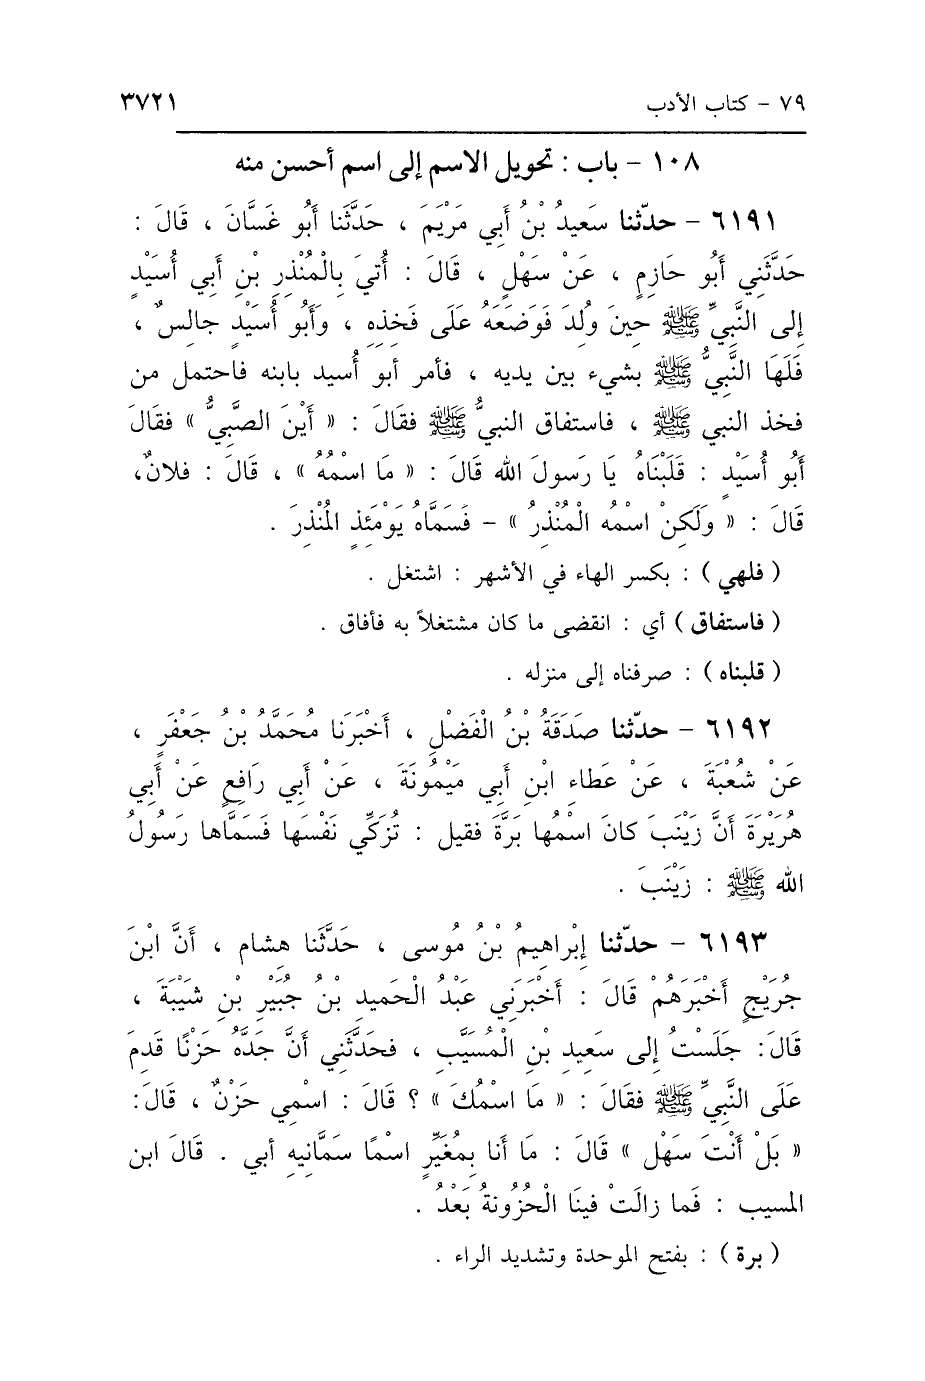 ٧٩ - كتاب الأدب ٣٧٢١
١٠٨ - باب : تحويل الاسم إلى اسم أحسن منه
٦١٩١ - حدّثنا سَعيدُ بْنُ أَبِي مَرْيَمَ ، حَدَّثَنا أَبُو غَسَّانَ ، قَالَ :
حَدَّثَنِي أَبُو حَازِمٍ ، عَنْ سَهْلٍ ، قَالَ : أُتِيَ بِالْمُنْذِرِ بْنِ أَبِي أُسَيْدٍ
إِلى النَّبِيِّ ﷺ حِينَ وُلِدَ فَوَضَعَهُ عَلَى فَخِذِهِ ، وَأَبُو أُسَيْدٍ جالِسٌ ،
فَلَهَا النَّبِيُّ ﷺ بشيء بين يديه ، فأمر أبو أُسيد بابنه فاحتمل من
فخذ النبي ﷺ ، فاستفاق النبيُّ ﷺ فقَالَ : « أَيْنَ الصَّبِيُّ » فقَالَ
أَبُو أُسَيْدٍ : قَلَبْنَاهُ يَا رَسولَ الله قَالَ : « مَا اسْمُهُ » ، قَالَ : فلانٌ،
قَالَ : « وَلَكِنْ اسْمُه الْمُنْذِرُ » - فَسَمَّاهُ يَوْمَئِذٍ المُنْذِرَ .
( فلهي ) : بكسر الهاء في الأشهر : اشتغل .
( فاستفاق ) أي : انقضى ما كان مشتغلاً به فأفاق .
( قلبناه ) : صرفناه إلى منزله .
٦١٩٢ - حدّثنا صَدَقَةُ بْنُ الْفَضْلِ ، أَخْبَرَنا مُحَمَّدُ بْنُ جَعْفَرٍ ،
عَنْ شُعْبَةَ ، عَنْ عَطاءِ ابْنِ أَبِي مَيْمُونَةَ ، عَنْ أَبِي رَافِعٍ عَنْ أَبِي
هُرَيْرَةَ أَنَّ زَيْنَبَ كانَ اسْمُها بَرَّةَ فقيل : تُزَكِّي نَفْسَها فَسَمَّاها رَسُولُ
الله ﷺ : زَيْنَبَ .
٦١٩٣ - حدّثنا إِبْراهِيمُ بْنُ مُوسى ، حَدَّثَنا هِشام ، أَنَّ ابْنَ
جُرَيْجٍ أَخْبَرَهُمْ قَالَ : أَخْبَرَنِي عَبْدُ الْحَمِيدِ بْنُ جُبَيْرِ بْنِ شَيْبَةَ ،
قَالَ: جَلَسْتُ إِلى سَعِيدِ بْنِ الْمُسَيَّبِ ، فحَدَّثَنِي أَنَّ جَدَّهُ حَزْنًا قَدِمَ
عَلَى النَّبِيِّ ﷺ فقَالَ : « مَا اسْمُكَ » ؟ قَالَ : اسْمِي حَزْنٌ ، قَالَ:
« بَلْ أَنْتَ سَهْل » قَالَ : مَا أَنا بِمُغَيِّرٍ اسْمًا سَمَّانِيهِ أَبي . قَالَ ابن
المسيب : فَما زالَتْ فينَا الْحُزُونةُ بَعْدُ .
( برة ) : بفتح الموحدة وتشديد الراء .